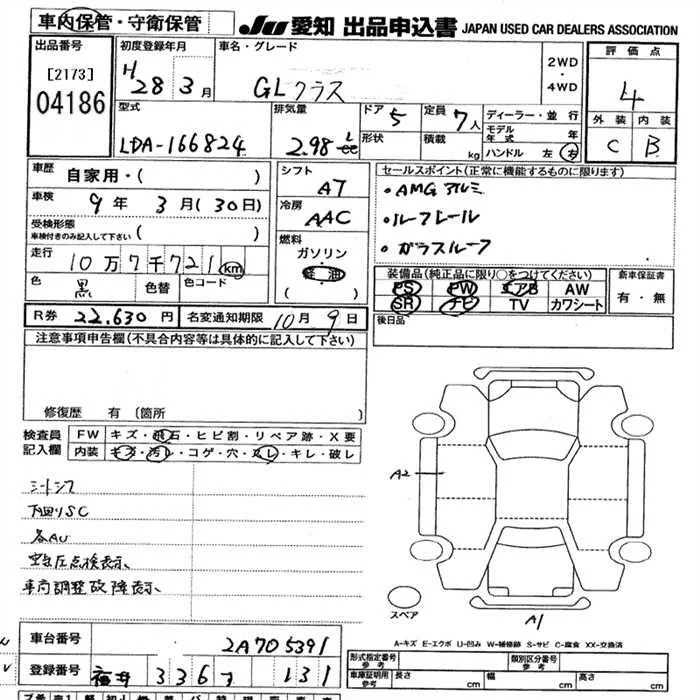 車内保管・守衛保管
JU 愛知 出品申込書 JAPAN USED CAR DEALERS ASSOCIATION
出品番号
[2173]
04186
初度登録年月
H28 3月
車名・グレード
GLクラス
2WD
・
4WD
評価点
4
外装 内装
C B
型式
LDA-166824
排気量
2.98 L cc
ドア 5
形状
定員 7人
積載 kg
ディーラー・並行
モデル年式 年
ハンドル 左・右
車歴 自家用・( )
車検 9年 3月(30日)
受検形態
車検付きのみ記入して下さい ( )
走行 10万7千721km
色 黒 色替 色コード
シフト
AT
冷房
AAC
燃料
ガソリン
軽油
( )
セールスポイント(正常に機能するものに限ります)
・AMGアルミ
・ルーフレール
・ガラスルーフ
装備品(純正品に限り○をつけてください)
PS PW エアB AW
SR ナビ TV カワシート
新車保証書
有・無
後日品
R券 22,630円 名変通知期限 10月9日
注意事項申告欄(不具合内容等は具体的に記入して下さい)
修復歴 有 (箇所 )
検査員記入欄
FW キズ・飛石・ヒビ割・リペア跡・X要
内装 キズ・汚レ・コゲ・穴・スレ・キレ・破レ
シートシワ
下回りSC
各AU
空気圧点検表示
車高調整故障表示
A2
スペア
A1
A-キズ E-エクボ U-凹み W-補修跡 S-サビ C-腐食 XX-交換済
車台番号 2A705391
登録番号 福井 336 131
形式指定番号 参考
類別区分番号 参考
車庫証明用 参考 長さ cm 幅 cm 高さ cm